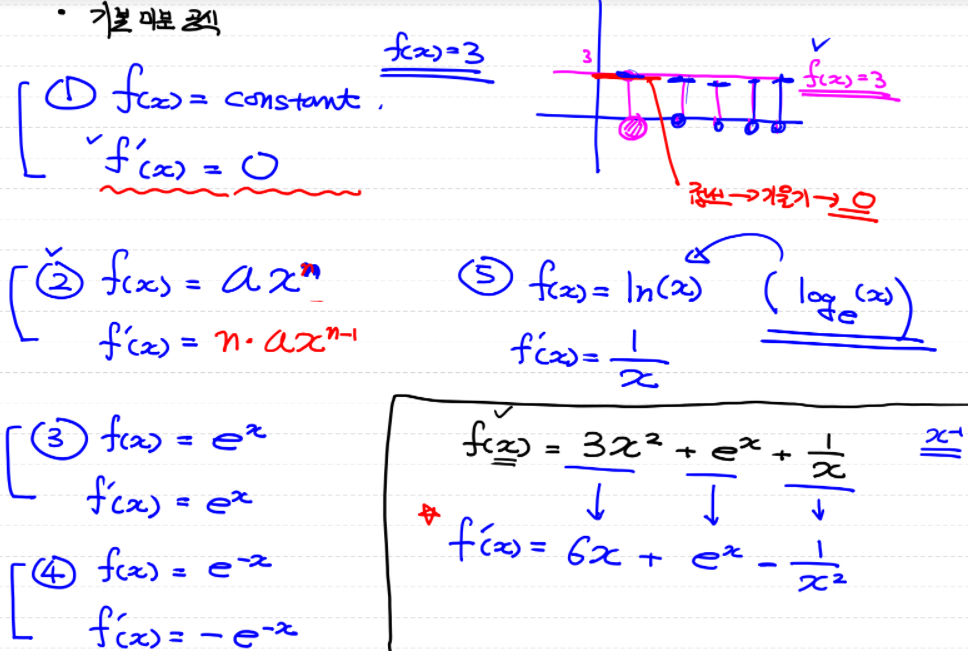 • 기본 미분 공식
① f(x) = constant.
f'(x) = 0
f(x)=3
3
f(x)=3
접선 → 기울기 → 0
② f(x) = ax^n
f'(x) = n·ax^{n-1}
③ f(x) = e^x
f'(x) = e^x
④ f(x) = e^{-x}
f'(x) = -e^{-x}
⑤ f(x) = ln(x) (log_e(x))
f'(x) = 1/x
f(x) = 3x² + e^x + 1/x
x^{-1}
f'(x) = 6x + e^x - 1/x²